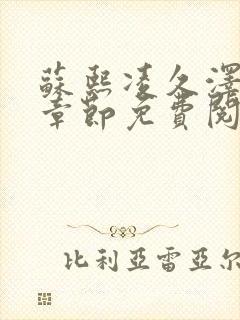 蘇熙凌久澤
章節免費閱
比利亞雷亞爾